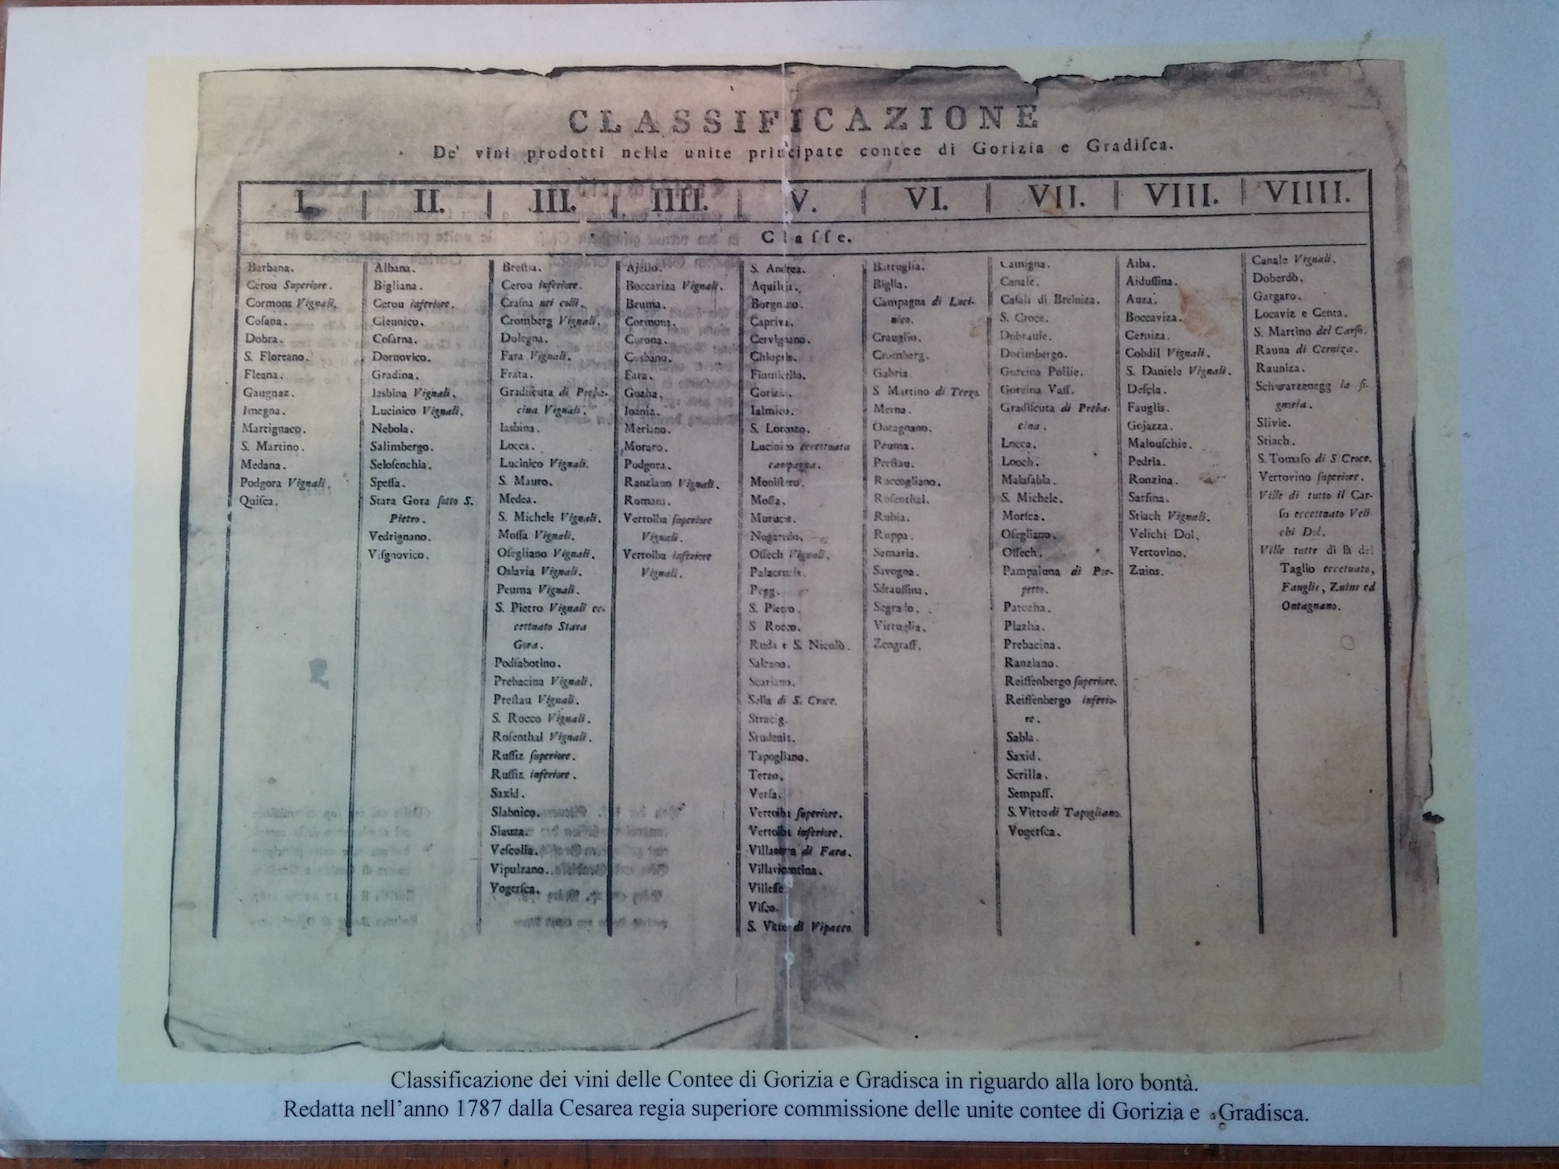 CLASSIFICAZIONE
De' vini prodotti nelle unite principate contee di Gorizia e Gradiſca.
I. II. III. IIII. V. VI. VII. VIII. VIIII.
Claſſe.
Barbana.
Cerou Superiore.
Cormons Vignali.
Coſana.
Dobra.
S. Floreano.
Fleana.
Gaugnaz.
Imegna.
Martignaco.
S. Martino.
Medana.
Podgora Vignali.
Quiſca.
Albana.
Bigliana.
Cerou inferiore.
Cleunico.
Coſarna.
Dornovico.
Gradina.
Iasbina Vignali.
Lucinico Vignali.
Nebola.
Salimbergo.
Seloſenchia.
Speſſa.
Stara Gora ſotto S.
Pietro.
Vedrignano.
Viſgnovico.
Breſtia.
Cerou inferiore.
Craſna nei colli.
Cromberg Vignali.
Dolegna.
Fara Vignali.
Frata.
Gradiſcuta di Preba-
cina Vignali.
Iasbina.
Locca.
Lucinico Vignali.
S. Mauro.
Medea.
S. Michele Vignali.
Moſſa Vignali.
Oſegliano Vignali.
Oslavia Vignali.
Peuma Vignali.
S. Pietro Vignali ec-
cettuato Stara
Gora.
Podſabotino.
Prebacina Vignali.
Preſtau Vignali.
S. Rocco Vignali.
Roſenthal Vignali.
Ruſſiz ſuperiore.
Ruſſiz inferiore.
Saxid.
Slabnico.
Slauza.
Veſcolia.
Vipulzano.
Vogerſca.
Ajello.
Boccaviza Vignali.
Bruma.
Cormons.
Corona.
Fara.
Ioaniz.
Meriano.
Moraro.
Podgora.
Ranziano Vignali.
Romans.
Vertoiba ſuperiore
Vignali.
Vertoiba inferiore
Vignali.
S. Andrea.
Aquileia.
Borgnano.
Capriva.
Cervignano.
Chiopris.
Fiumicello.
Gorizia.
Ialmico.
S. Lorenzo.
Lucinico eccettuata
campagna.
Moniſtero.
Moſſa.
Muruzis.
Nogaredo.
Oſſech Vignali.
S. Pietro.
S Rocco.
Ruda e S. Nicolò.
Salcano.
Sella di S. Croce.
Stracig.
Studenit.
Tapogliano.
Terzo.
Verſa.
Vertoiba ſuperiore.
Vertoiba inferiore.
Villanova di Fara.
Villavicentina.
Villeſſe
Viſco.
S. Vito di Vipacco.
Battuglia.
Biglia.
Campagna di Luci-
nico.
Crauglio.
Cromberg.
Gabria.
S Martino di Terzo.
Merna.
Ontagnano.
Peuma.
Preſtau.
Raccogliano.
Roſenthal.
Rubia.
Ruppa.
Samaria.
Savogna.
Sdrauſſina.
Segrado.
Virtuglia.
Zengraff.
Camigna.
Canale.
Caſali di Breiniza.
S. Croce.
Dobraule.
Dorimbergo.
Goreina Pollie.
Goreina Vaſſ.
Gradiſcuta di Preba-
cina.
Locca.
Looch.
Malafabla.
S. Michele.
Morſca.
Oſegliano.
Oſſech.
Pampaluna di Por-
petto.
Patozha.
Plazha.
Prebacina.
Ranziano.
Reiffenbergo ſuperiore.
Reiffenbergo inferio-
re.
Sabla.
Saxid.
Scrilla.
Sempaſſ.
S. Vitto di Tapogliano.
Vogerſca.
Aiba.
Aiduſſina.
Auza.
Boccaviza.
Cerniza.
Cobdil Vignali.
S. Daniele Vignali.
Deſcla.
Fauglis.
Gojazza.
Malouſchie.
Pedria.
Ronzina.
Sarſina.
Stiach Vignali.
Velichi Dol.
Vertovino.
Zuins.
Canale Vignali.
Doberdò.
Gargaro.
Locaviz e Centa.
S. Martino del Carſo.
Rauna di Cerniza.
Rauniza.
Schwarzenegg la ſi-
gnoria.
Slivie.
Stiach.
S. Tomaſo di S Croce.
Vertovino ſuperiore.
Ville di tutto il Car-
ſo eccettuato Veli-
chi Dol.
Ville tutte di là del
Taglio eccetuato,
Fauglis, Zuins ed
Ontagnano.
Classificazione dei vini delle Contee di Gorizia e Gradisca in riguardo alla loro bontà.
Redatta nell'anno 1787 dalla Cesarea regia superiore commissione delle unite contee di Gorizia e Gradisca.